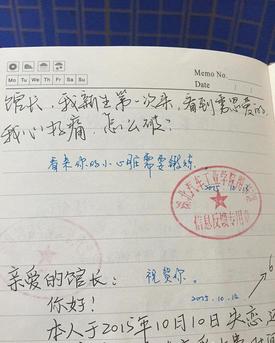 Memo No.
Mo Tu We Th Fr Sa Su
Date
馆长,我新生第一次来,看到秀恩爱的
我心好痛,怎么破?
看来你的小心脏需要锻炼.
2015.10.13
信息反馈专用章
亲爱的馆长:
祝贺你.
你好!
2015.10.12
本人于2015年10月10日失恋